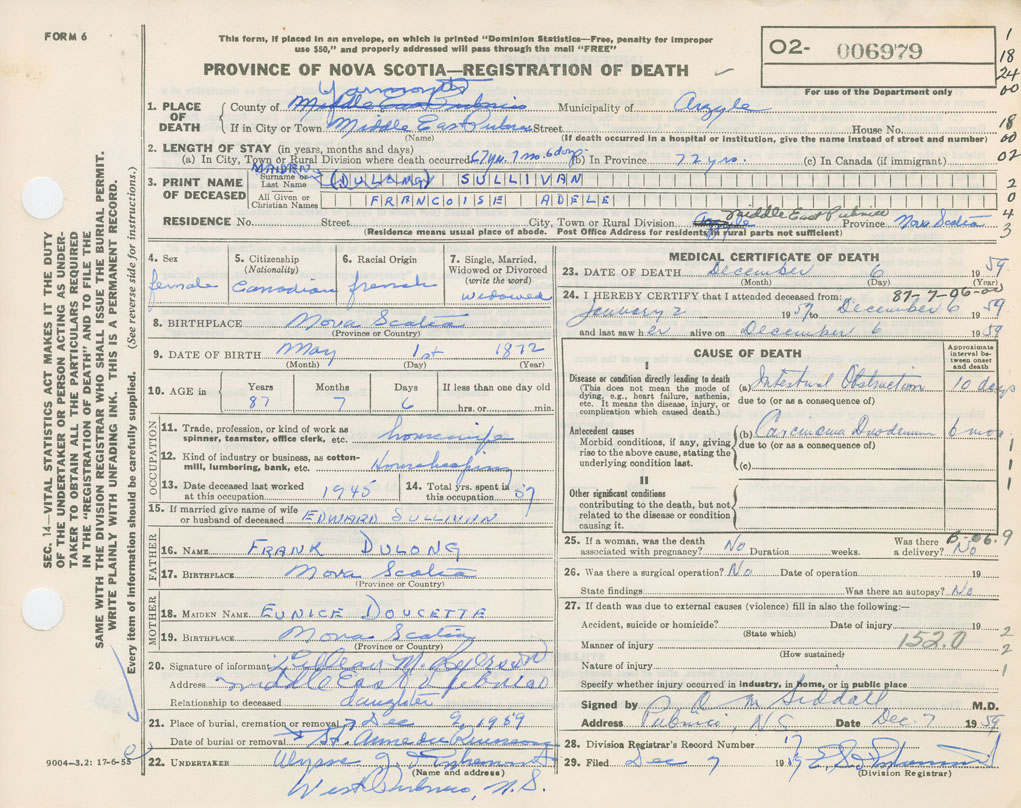 FORM 6
This form, if placed in an envelope, on which is printed "Dominion Statistics—Free, penalty for improper
use $50," and properly addressed will pass through the mail "FREE"
O2- 006979
For use of the Department only
PROVINCE OF NOVA SCOTIA—REGISTRATION OF DEATH
1. PLACE OF DEATH
County of Yarmouth Municipality of Argyle
If in City or Town Middle East Pubnico Street House No.
(Name) (If death occurred in a hospital or institution, give the name instead of street and number)
2. LENGTH OF STAY (in years, months and days)
(a) In City, Town or Rural Division where death occurred 67 yrs. 7 mo. 6 days (b) In Province 72 yrs. (c) In Canada (if immigrant)
3. PRINT NAME OF DECEASED
MAIDEN
Surname or Last Name (DULONG) SULLIVAN
All Given or Christian Names FRANCOISE ADELE
RESIDENCE No. Street City, Town or Rural Division Middle East Pubnico Province Nova Scotia
(Residence means usual place of abode. Post Office Address for residents in rural parts not sufficient)
4. Sex female
5. Citizenship (Nationality) Canadian
6. Racial Origin french
7. Single, Married, Widowed or Divorced (write the word) widowed
8. BIRTHPLACE Nova Scotia
(Province or Country)
9. DATE OF BIRTH May 1st 1872
(Month) (Day) (Year)
10. AGE in Years 87 Months 7 Days 6 If less than one day old hrs. or min.
OCCUPATION
11. Trade, profession, or kind of work as spinner, teamster, office clerk, etc. housewife
12. Kind of industry or business, as cotton-mill, lumbering, bank, etc. Housekeeping
13. Date deceased last worked at this occupation 1945
14. Total yrs. spent in this occupation 57
15. If married give name of wife or husband of deceased EDWARD SULLIVAN
FATHER
16. NAME FRANK DULONG
17. BIRTHPLACE Nova Scotia
(Province or Country)
MOTHER
18. MAIDEN NAME EUNICE DOUCETTE
19. BIRTHPLACE Nova Scotia
(Province or Country)
20. Signature of informant M.
Address Middle East Pubnico
Relationship to deceased daughter
21. Place of burial, cremation or removal Dec 9, 1959
Date of burial or removal St. Anne
22. UNDERTAKER
(Name and address)
West Pubnico, N.S.
9004—3.2: 17-6-55
MEDICAL CERTIFICATE OF DEATH
23. DATE OF DEATH December 6 1959
(Month) (Day) (Year)
87-7-06-00
24. I HEREBY CERTIFY that I attended deceased from:
January 2 1957 to December 6 1959
and last saw her alive on December 6 1959
CAUSE OF DEATH
Approximate interval between onset and death
I
Disease or condition directly leading to death
(This does not mean the mode of dying, e.g., heart failure, asthenia, etc. It means the disease, injury, or complication which caused death.)
(a) Intestinal Obstruction 10 days
due to (or as a consequence of)
Antecedent causes
Morbid conditions, if any, giving rise to the above cause, stating the underlying condition last.
(b) Carcinoma Duodenum 6 mos
due to (or as a consequence of)
(c)
II
Other significant conditions
contributing to the death, but not related to the disease or condition causing it.
B-06.9
25. If a woman, was the death associated with pregnancy? No Duration weeks. Was there a delivery? No
26. Was there a surgical operation? No Date of operation 19
State findings Was there an autopsy? No
27. If death was due to external causes (violence) fill in also the following:—
Accident, suicide or homicide? Date of injury 19
(State which)
152.0
Manner of injury
(How sustained)
Nature of injury
Specify whether injury occurred in industry, in home, or in public place
Signed by M Siddall M.D.
Address Pubnico, N.S. Date Dec. 7 1959
28. Division Registrar's Record Number 17
29. Filed Dec 7 19
(Division Registrar)
1
18
24
00
18
00
02
2
0
4
3
1
1
1
2
2
1
SEC. 14—VITAL STATISTICS ACT MAKES IT THE DUTY
OF THE UNDERTAKER OR PERSON ACTING AS UNDER-
TAKER TO OBTAIN ALL THE PARTICULARS REQUIRED
IN THE "REGISTRATION OF DEATH" AND TO FILE THE
SAME WITH THE DIVISION REGISTRAR WHO SHALL ISSUE THE BURIAL PERMIT.
WRITE PLAINLY WITH UNFADING INK. THIS IS A PERMANENT RECORD.
Every item of information should be carefully supplied. (See reverse side for instructions.)